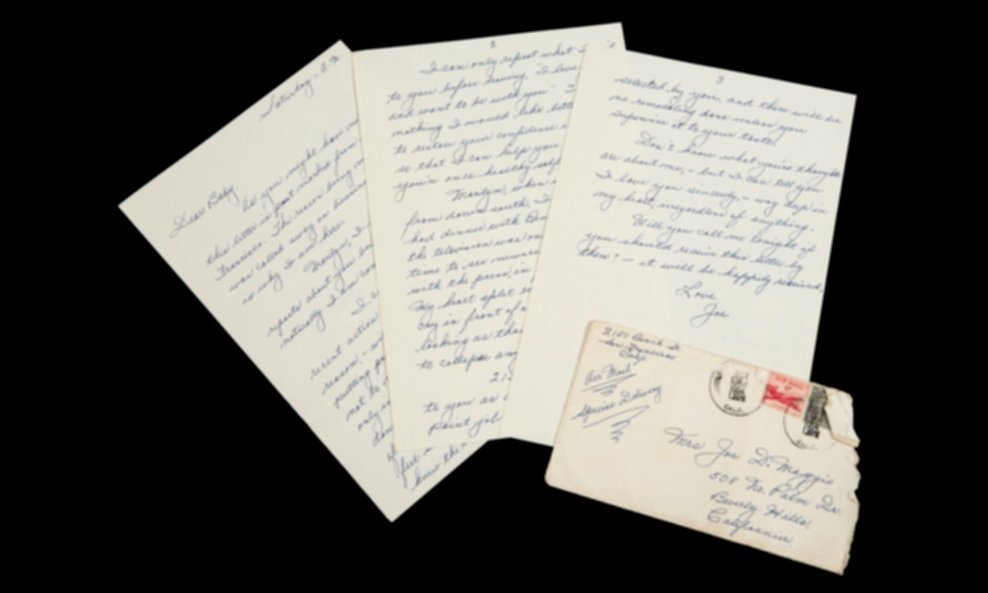 Saturday - A.M.
Dear Baby
As you might have no
this letter is post marked from
Francisco. The reason being
was called away on business
is why I am here.
Marilyn, I
reports about you
naturally I am con
I
recent action
reason, -
putting
not
only
feel
know the
2
I can only repeat what I
to you before leaving. "I love
and want to be with you." I
nothing I would like bette
to restore your confidence
so that I can help you
you're once healthy self
Marilyn, when
from down south, I
had dinner with
the television was on
tane to see
with the press, in
My heart split
cry in front of
looking as tho
to collapse any
21
to you as
paint job
3
selected by your, and there will be
no remodeling done unless you
supervise it to your taste.
Don't know what you're thoughts
are about me, - but I can tell you
I love you sincerely, - way deep in
my heart, irregardless of anything.
Will you call me tonight if
you should receive this letter by
then? - it will be happily received.
Love,
Joe
2150 Beach St
San Francisco
Calif.
Air Mail
Special Delivery
CALIF.
Mrs Joe Di Maggio
508 No. Palm Dr.
Beverly Hills,
California